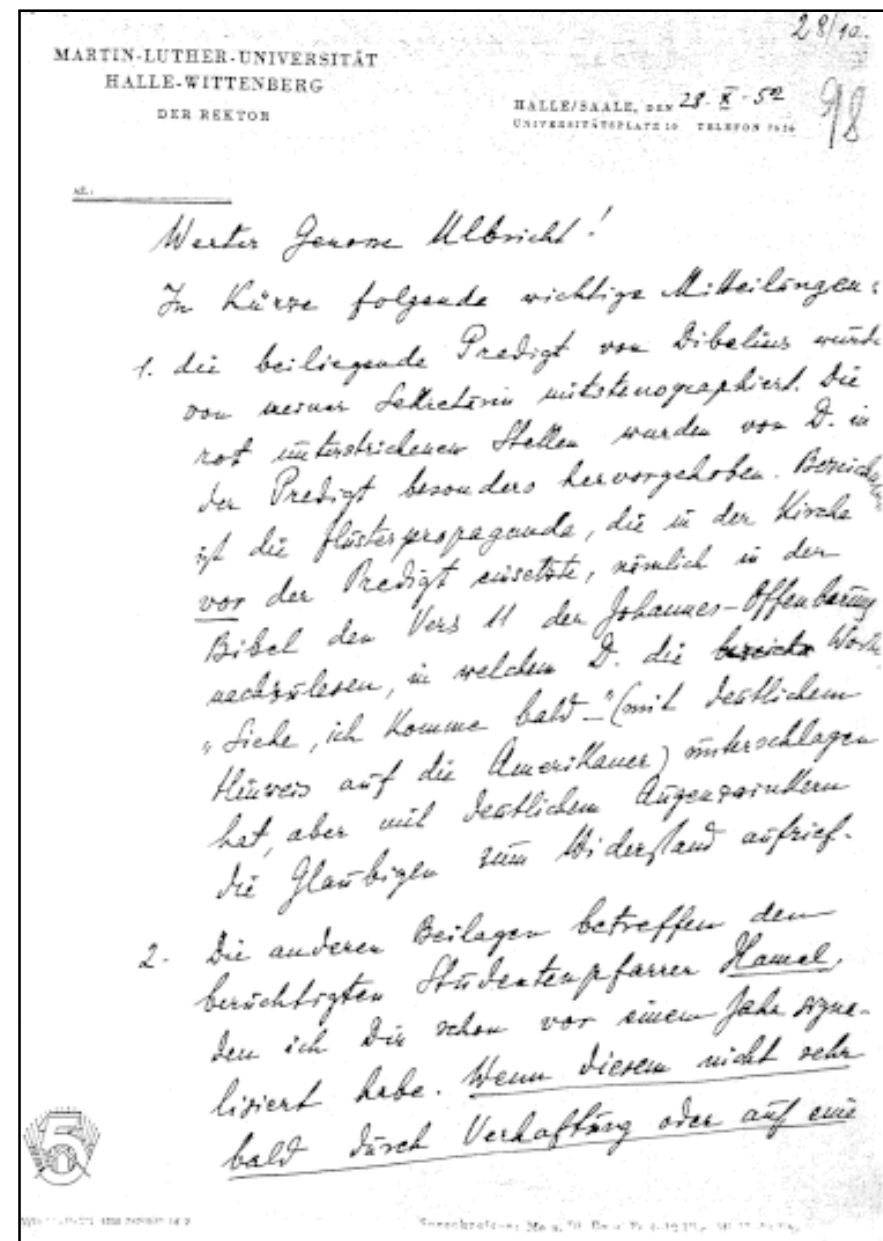 28/10.
MARTIN-LUTHER-UNIVERSITÄT
HALLE-WITTENBERG
DER REKTOR
HALLE/SAALE, DEN 28. X. 52
UNIVERSITÄTSPLATZ 10 TELEFON
98
AZ.:
Werter Genosse Ulbricht!
In Kürze folgende wichtige Mitteilungen:
1. die beiliegende Predigt von Dibelius wurde
von meiner Sekretärin mitstenographiert. Die
rot unterstrichenen Stellen wurden von D. in
der Predigt besonders hervorgehoben. Bezeichnend
ist die Flüsterpropaganda, die in der Kirche
vor der Predigt einsetzte, nämlich in der
Bibel den Vers 11 der Johannes-Offenbarung
nachzulesen, in welchem D. die Worte
„Siehe, ich komme bald –" (mit deutlichem
Hinweis auf die Amerikaner) unterschlagen
hat, aber mit deutlichem Augenzwinkern
die Gläubigen zum Widerstand aufrief.
2. Die anderen Beilagen betreffen den
berüchtigten Studentenpfarrer Hamel,
den ich Dir schon vor einem Jahr signa-
lisiert habe. Wenn diesem nicht sehr
bald durch Verhaftung oder auf eine
5